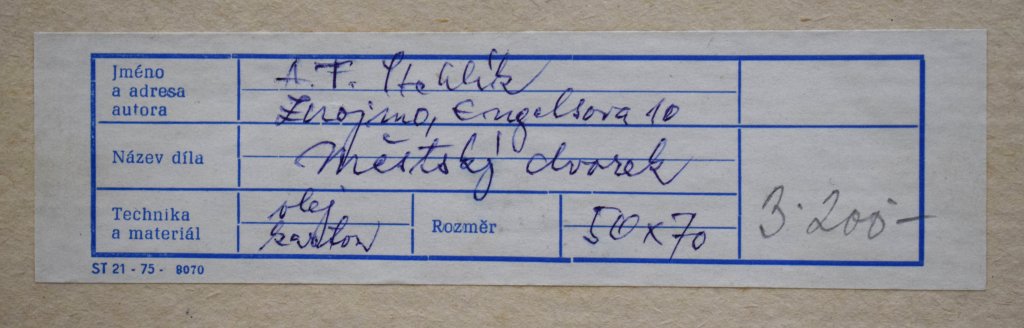 Jméno
a adresa
autora
A. F. Stehlík
Znojmo, Engelsova 10
Název díla
Městský dvorek
Technika
a materiál
olej
karton
Rozměr
50x70
3.200-
ST 21 - 75 - 8070